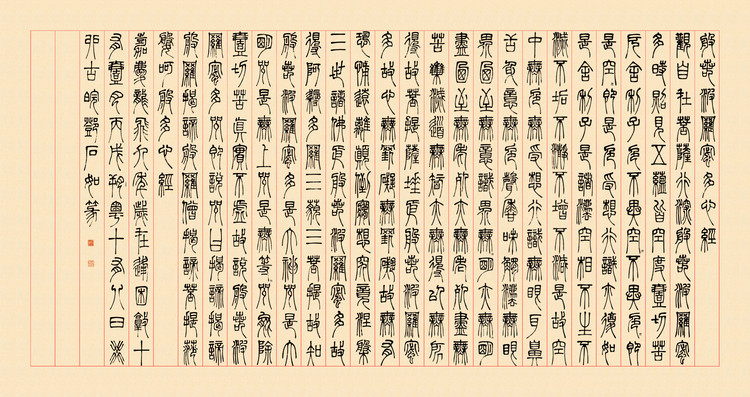 般若波羅蜜多心經
觀自在菩薩行深般若波羅蜜
多時照見五蘊皆空度壹切苦
厄舍利子色不異空不異色即
是空即是色受想行識亦復如
是舍利子是諸法空相不生不
滅不垢不淨不增不減是故空
中無色無受想行識無眼耳鼻
舌身意無色聲香味觸法無眼
界乃至無意識界無明亦無明
盡乃至無老死亦無老死盡無
苦集滅道無智亦無得以無所
得故菩提薩埵依般若波羅蜜
多故心無罣礙無罣礙故無有
恐怖遠離顛倒夢想究竟涅槃
三世諸佛依般若波羅蜜多故
得阿耨多羅三藐三菩提故知
般若波羅蜜多是大神咒是大
明咒是無上咒是無等咒能除
壹切苦真實不虛故說般若波
羅蜜多咒即說咒曰揭諦揭諦
般羅揭諦般羅僧揭諦菩提薩
婆呵般多心經
嘉慶龍飛九年歲在逢困敦十
有壹月丙戌朔粵十有八日癸
卯古皖鄧石如篆